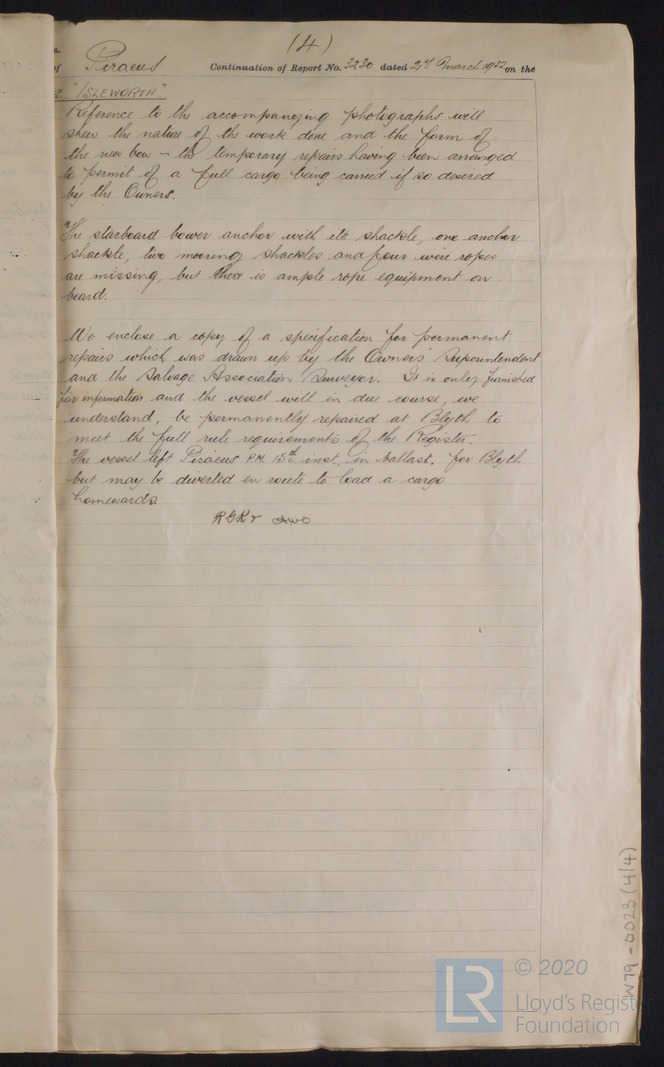 (4)
Piraeus Continuation of Report No. 3230 dated March on the
"ISLEWORTH."
Reference to the accompanying photographs will
shew the nature of the work done and the form of
the new bow - the temporary repairs having been arranged
to permit of a full cargo being carried if so desired
by the Owners.
The starboard bower anchor with its shackle, one anchor
shackle, two mooring shackles and four wire ropes
are missing, but there is ample rope equipment on
board.
We enclose a copy of a specification for permanent
repairs which was drawn up by the Owners Superintendent
and the Salvage Association Surveyor. It is only furnished
for information and the vessel will in due course, we
understand, be permanently repaired at Blyth to
meet the full rule requirements of the Register.
The vessel left Piraeus P.M. 15th inst., in ballast, for Blyth
but may be diverted en route to load a cargo
homewards
W79-0023 (4/4)
LR © 2020
Lloyd's Register
Foundation